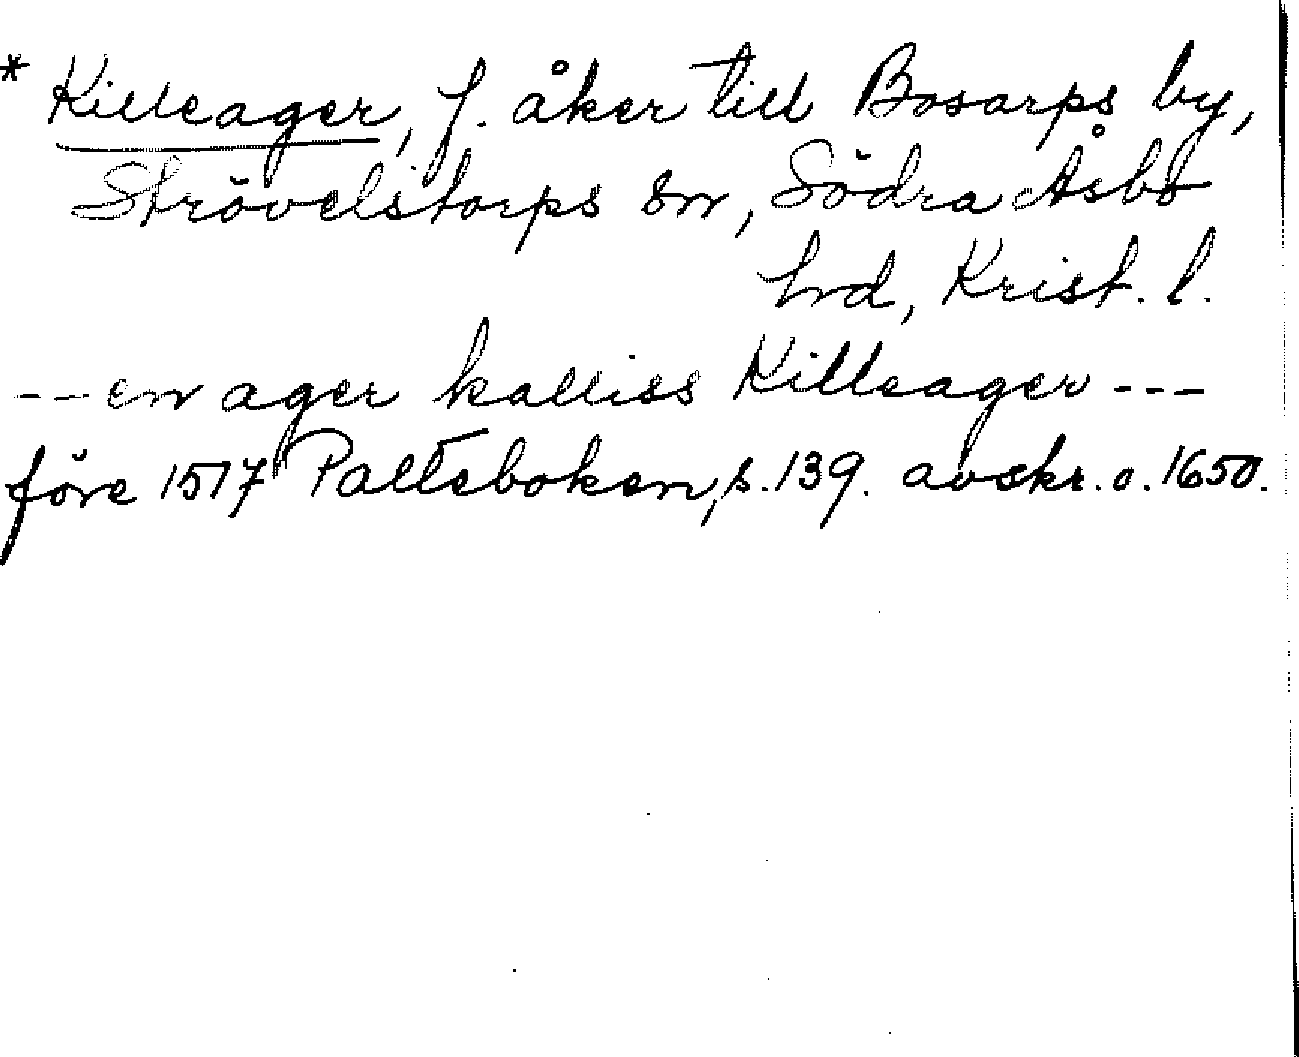 * Killeager, f. åker till Bosarps by,
Strövelstorps sn, Södra Åsbo
hd, Krist. l.
--- en ager kalliss Killeager ---
före 1517 Palteboken, s. 139. avskr. o. 1650.